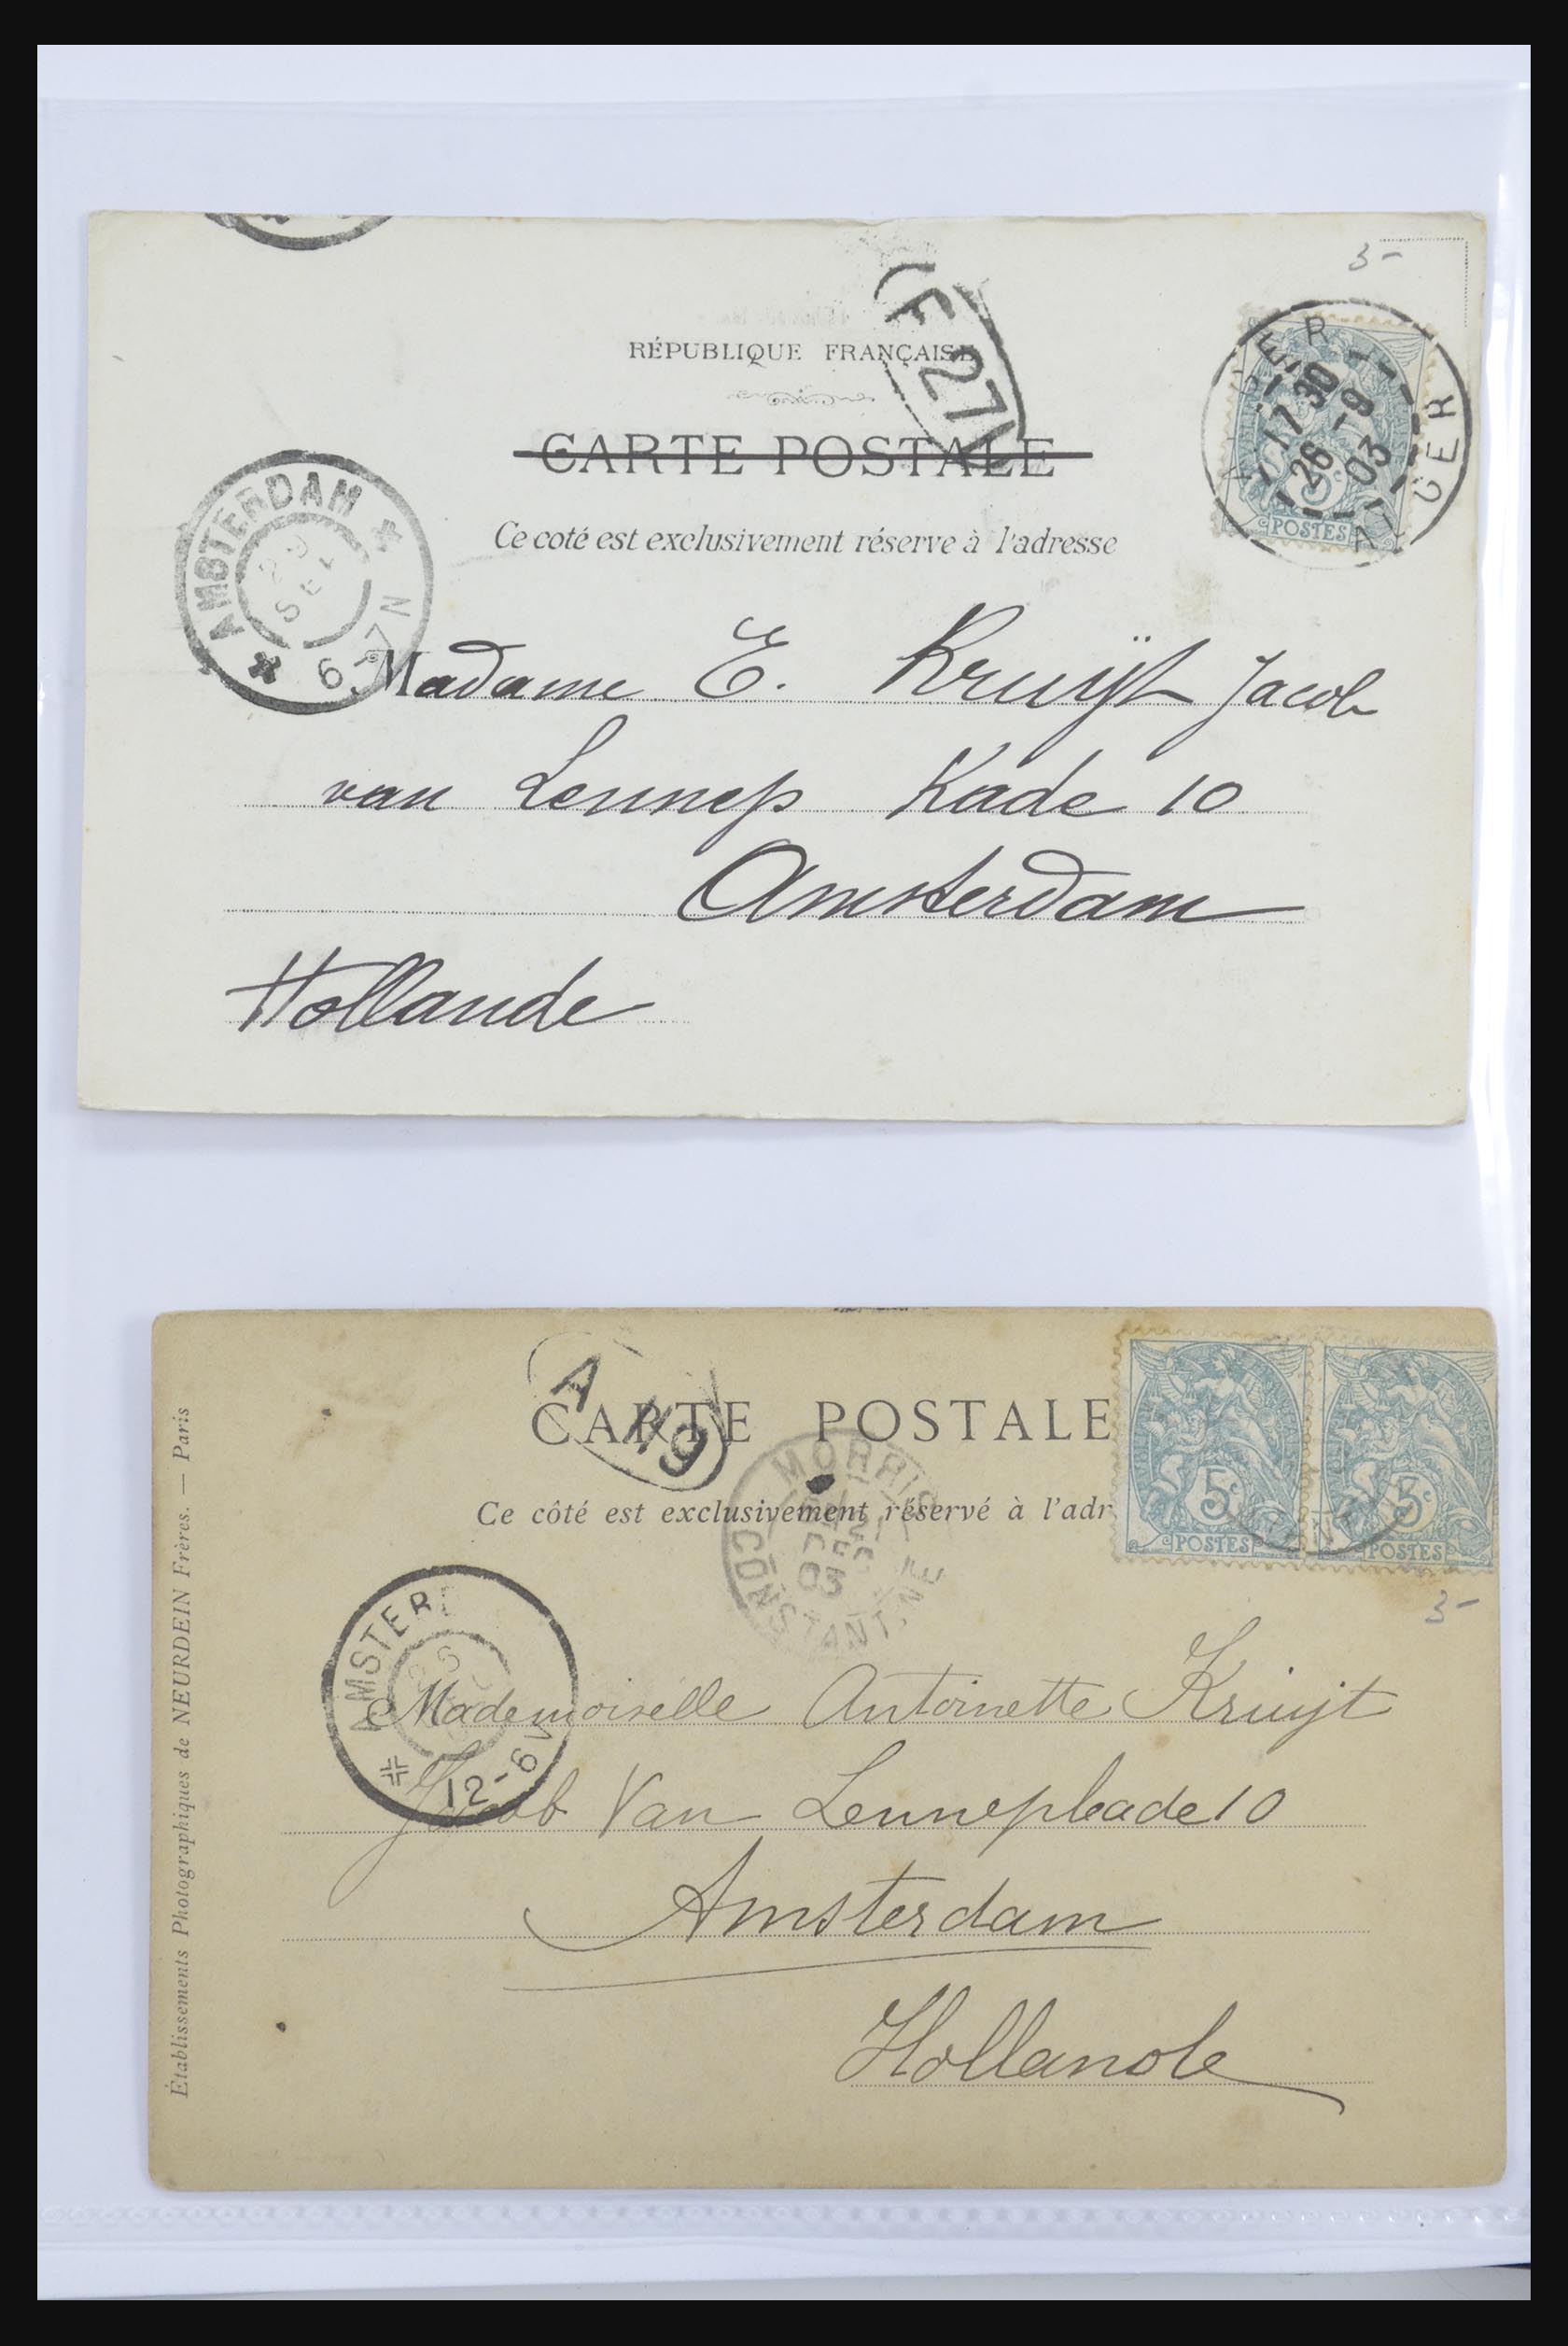 3-
F 27
RÉPUBLIQUE FRANÇAISE
CARTE POSTALE
Ce coté est exclusivement réserve à l'adresse
ALGER
17 30
26 -9
03
ALGER
5c
POSTES
AMSTERDAM
6-7N
Madame E. Kruÿt Jacob
van Lennep Kade 10
Amsterdam
Hollande
A 119
CARTE POSTALE
Ce côté est exclusivement réservé à l'adr
MORRIS
21
DEC
03
CONSTANTINE
5c
POSTES
5c
POSTES
3-
AMSTER
12-6V
Mademoiselle Antoinette Kruijt
Jacob Van Lennepkade 10
Amsterdam
Hollande
Établissements Photographiques de NEURDEIN Frères. — Paris